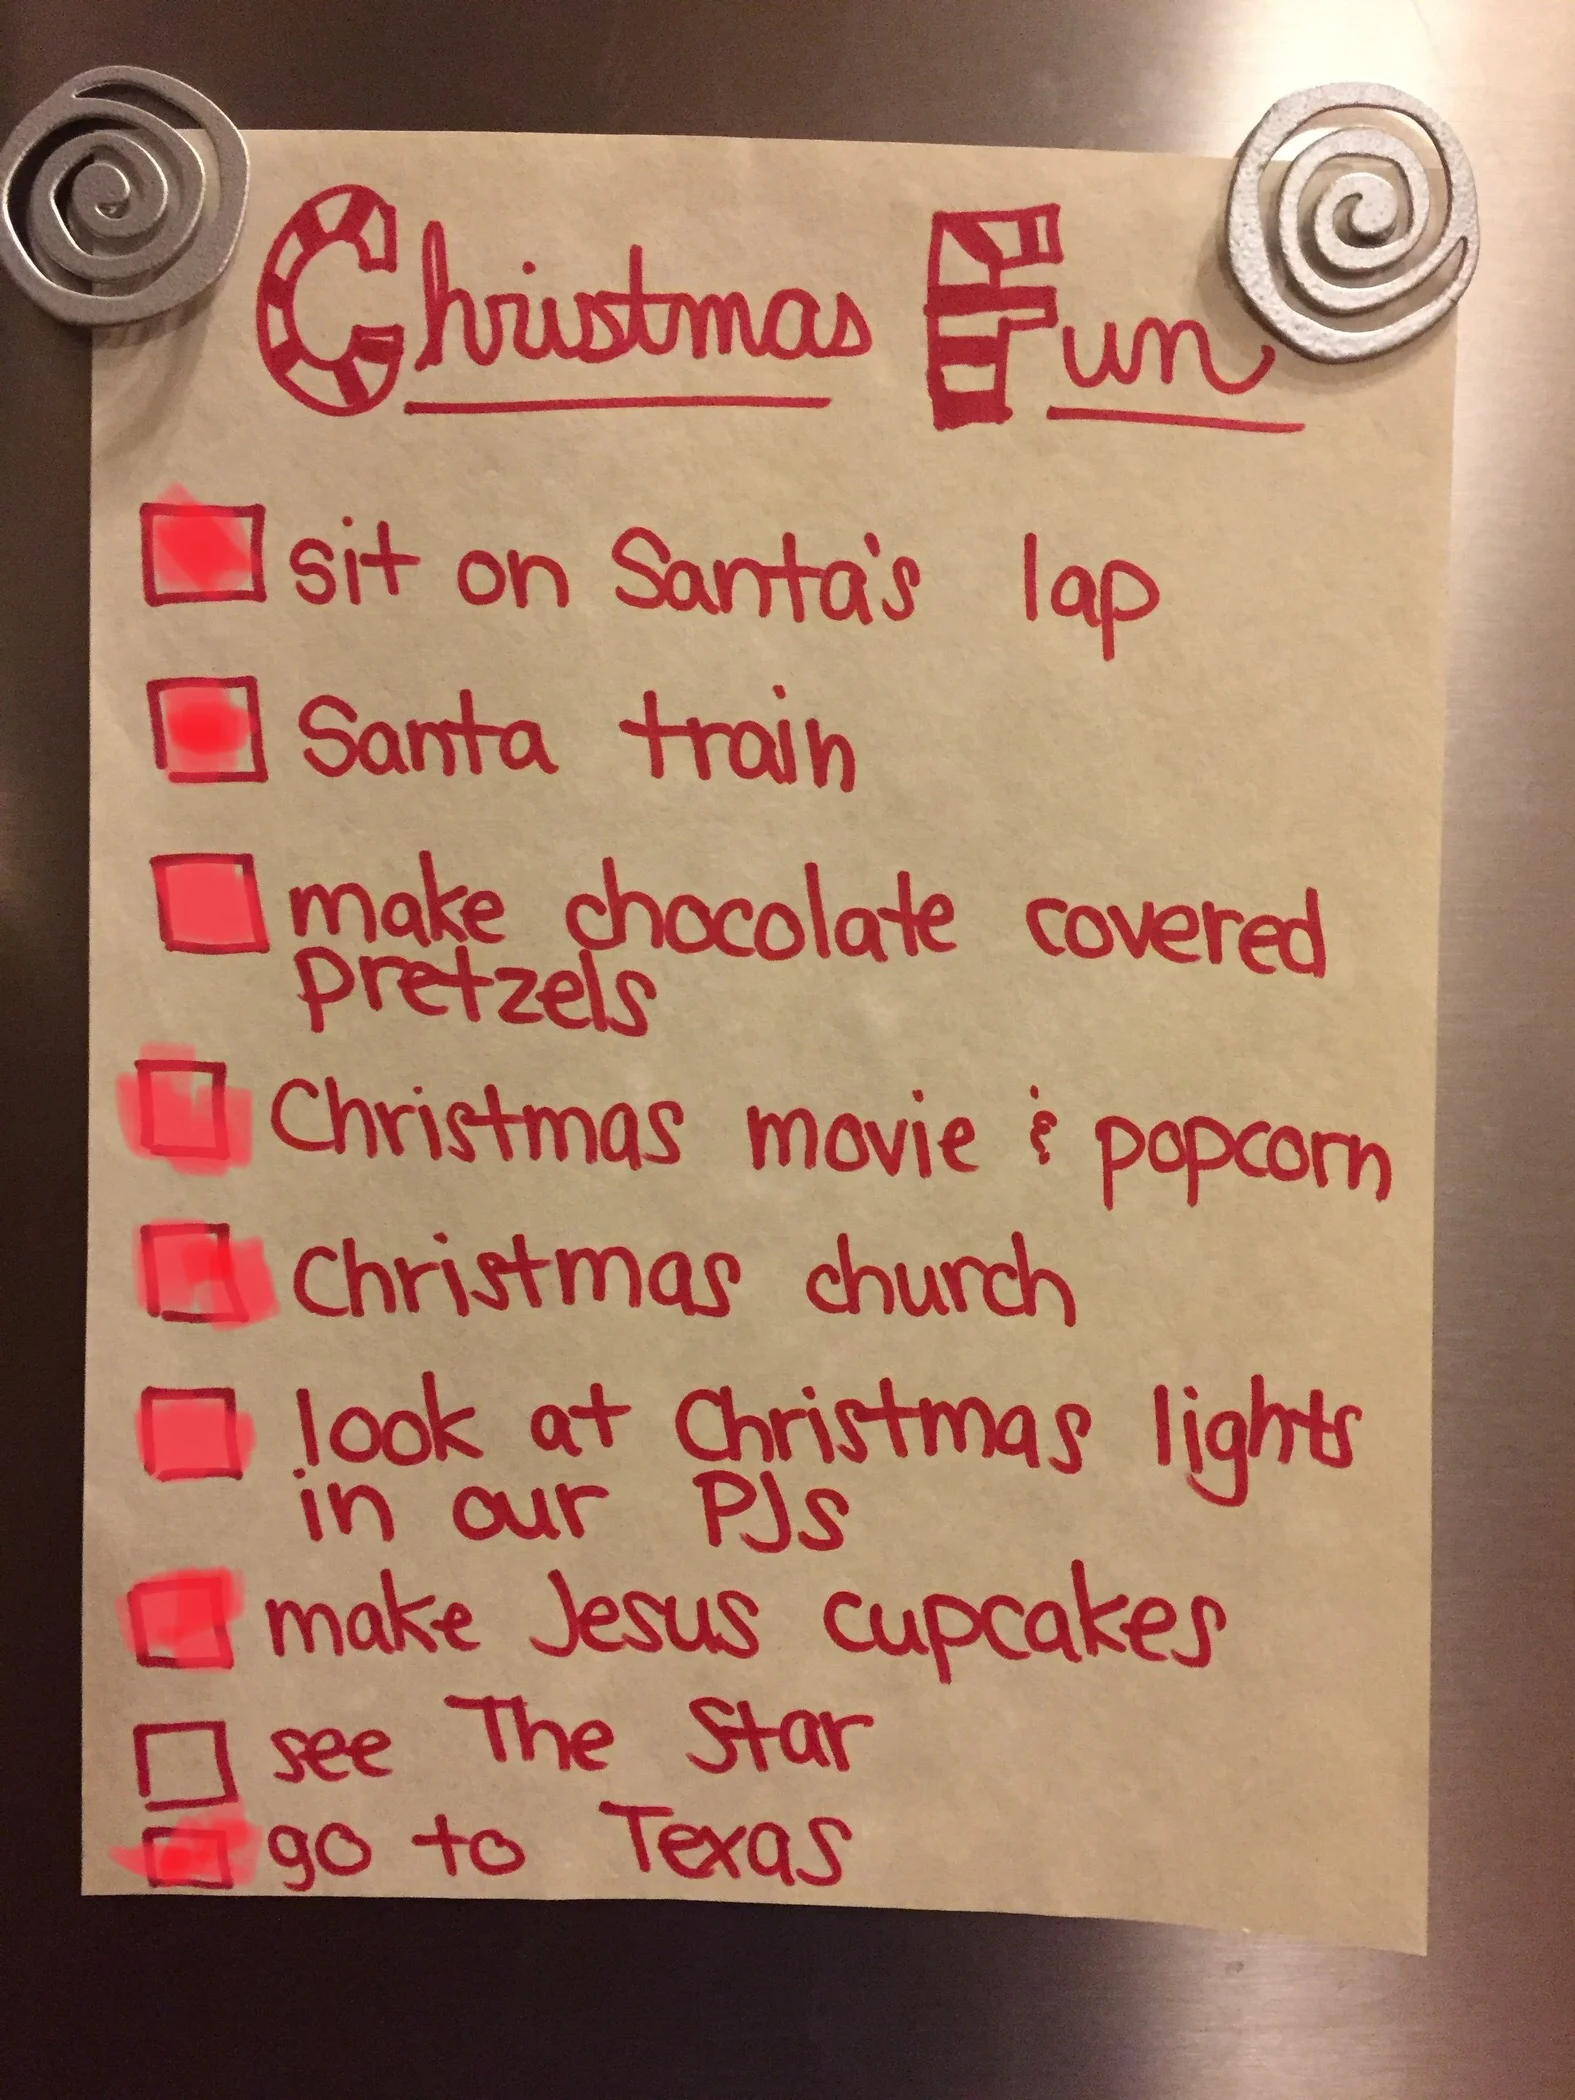 Christmas Fun
sit on Santa's lap
Santa train
make chocolate covered
pretzels
Christmas movie & popcorn
Christmas church
look at Christmas lights
in our PJs
make Jesus cupcakes
see The Star
go to Texas